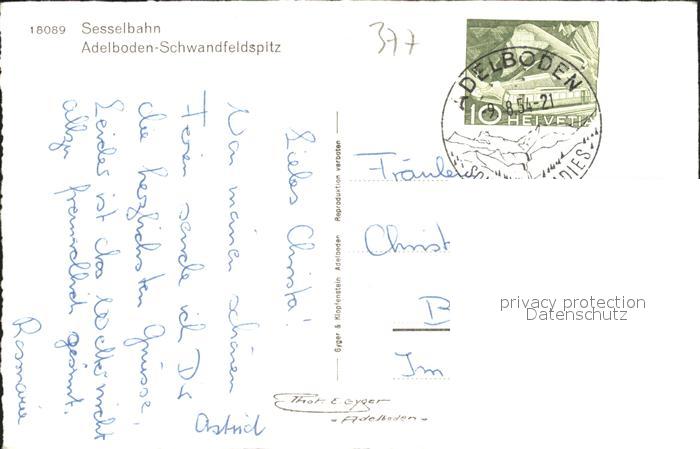 18089 Sesselbahn
Adelboden-Schwandfeldspitz
377
ADELBODEN
9.8.54-21
10 HELVETIA
Liebes Christa!
Von meinen schönen
Ferien sende ich Dir
die herzlichsten Grüsse.
Leider ist das Wetter nicht
allzu freundlich gesinnt.
Astrid
Rosmarie
Gyger & Klopfenstein Adelboden Reproduktion verboten
Fräule
Christ
B
Im
privacy protection
Datenschutz
Phot. E. Gyger
- Adelboden -